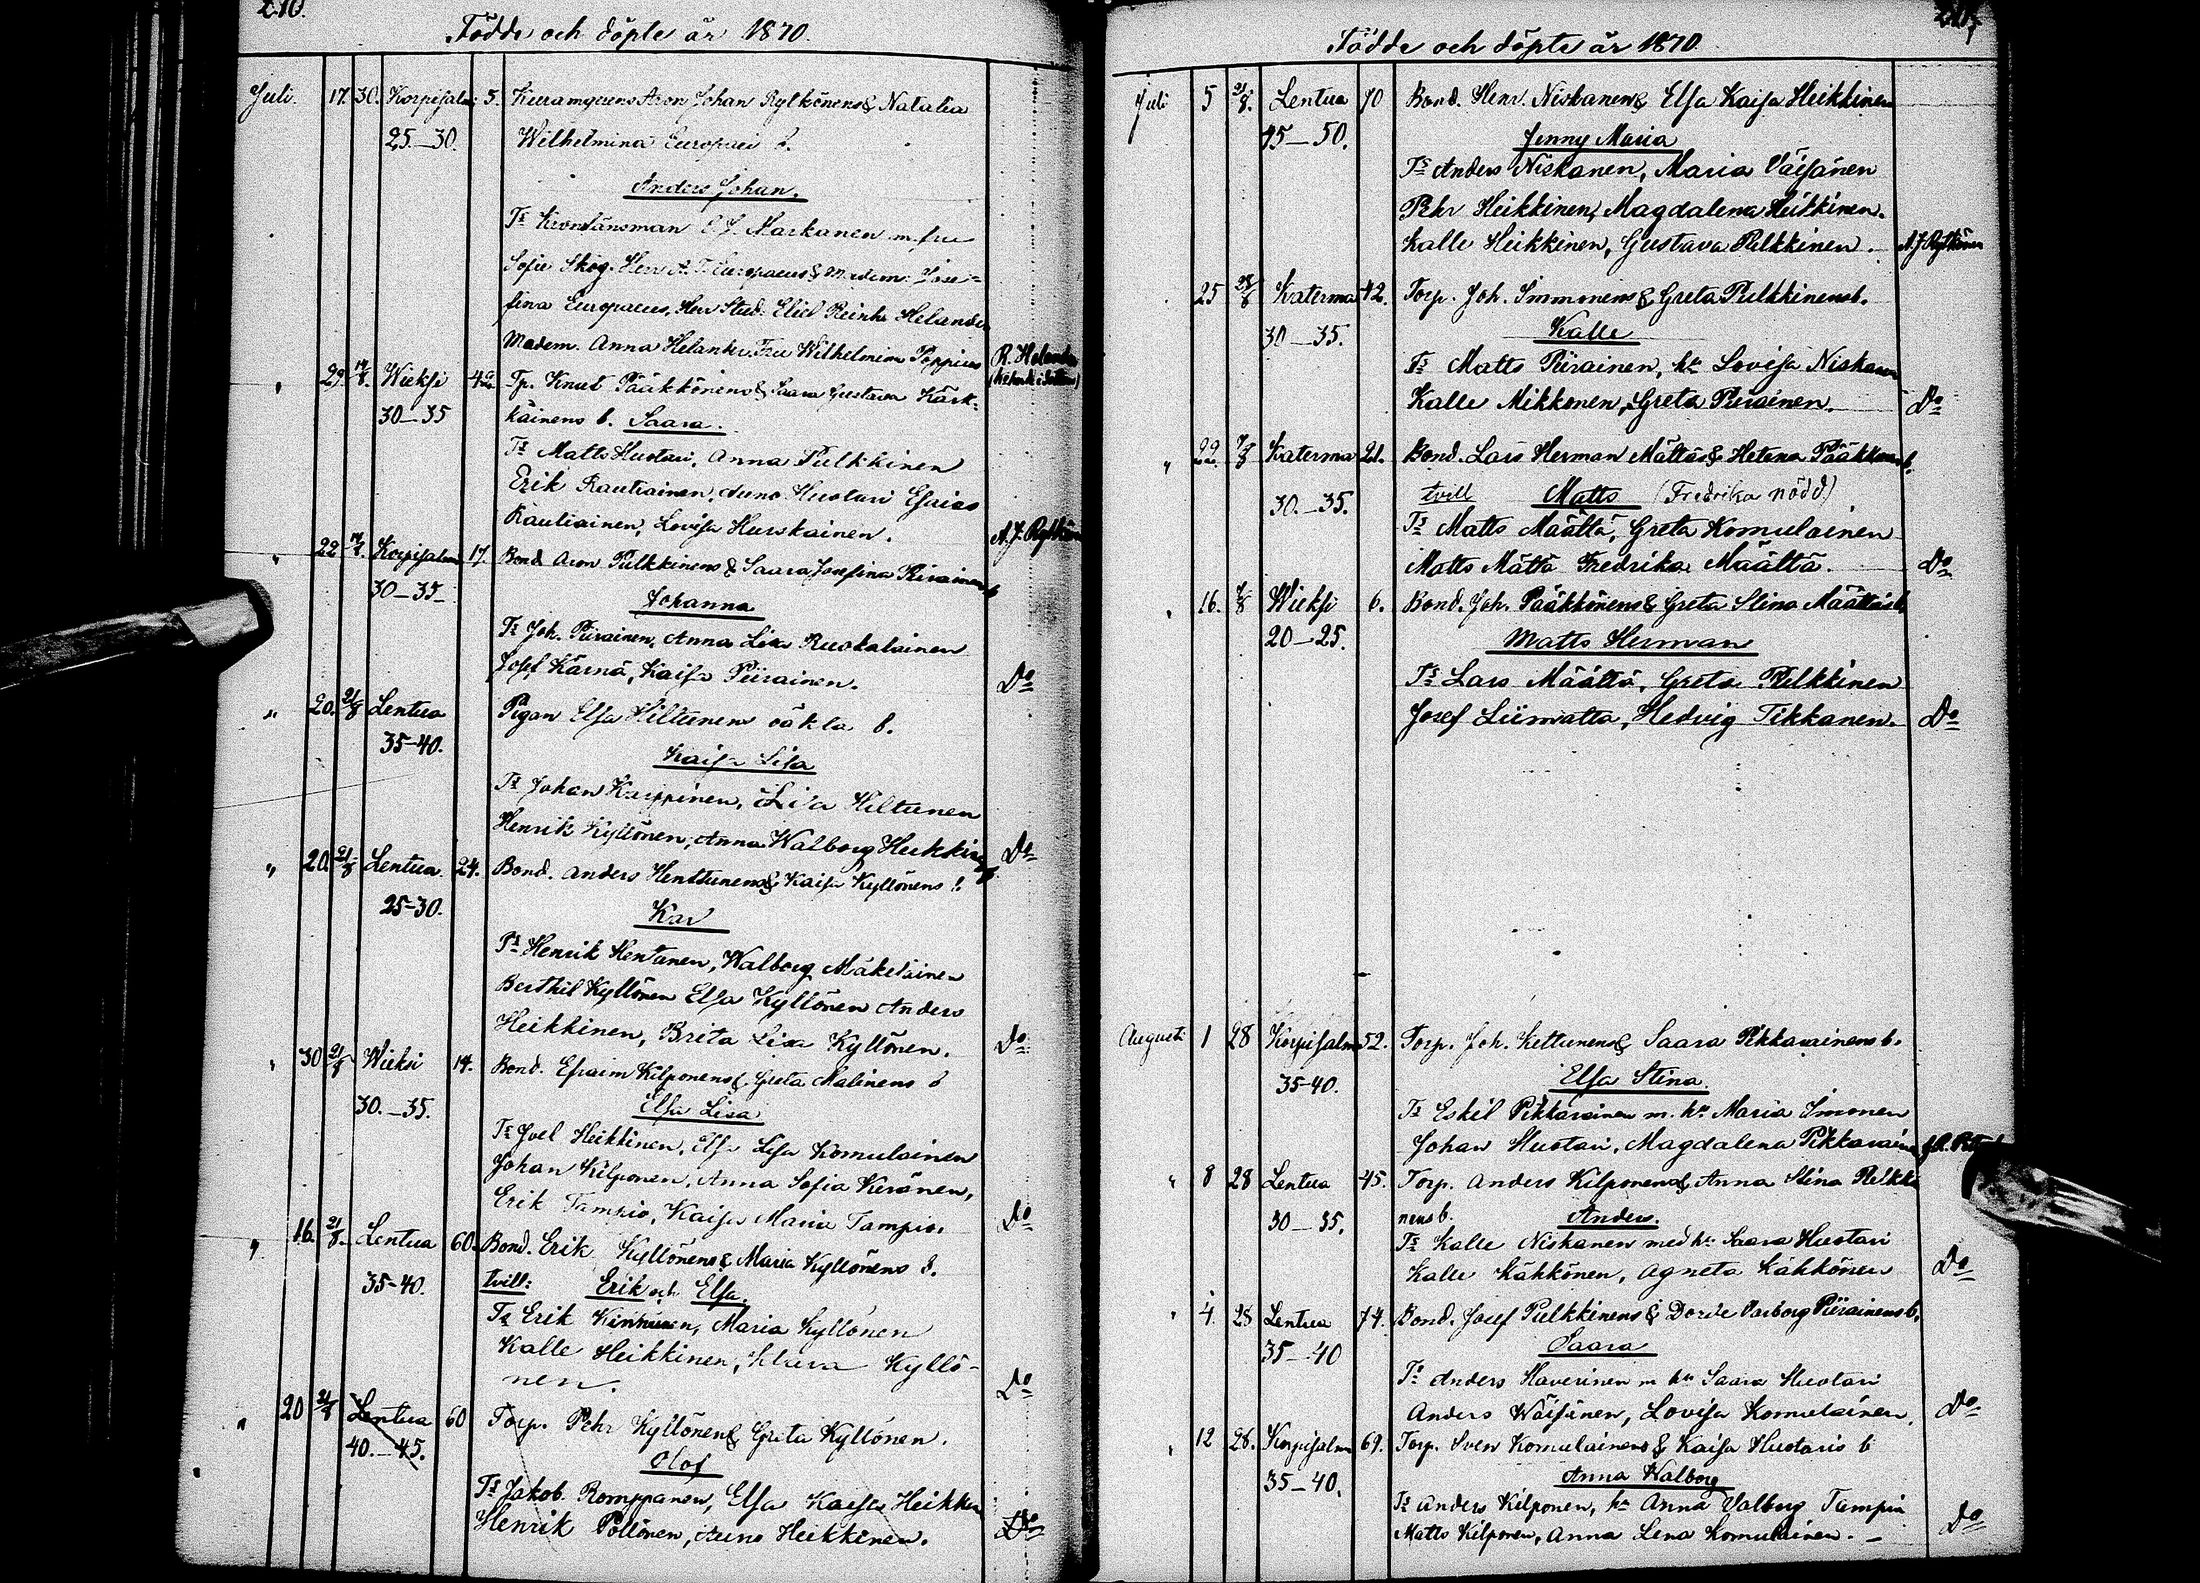 210.
Födde och döpte år 1870.
Juli. 17. 30. Korpisalmi 5. Aron Johan Rytkönens & Natalia
25.—30. Wilhelmina Europaei b.
Anders Johan.
Ts Kronlänsman E. J. Markanen m. fru
Sofie Skog. Herr A. F. Europaeus & Madem. Jose=
fina Europaeus, Herr Stud. Eliel Reinh. Helander
Madem. Anna Helander, Fru Wilhelmina Poppius R. Helander
" 29. 14/8. Wieksi 42. Tp. Knut Pääkkönens & Saara Gustava Kärk=
30—35 käinens b. Saara.
Ts Matts Huotari, Anna Pulkkinen
Erik Rautiainen, Auno Huotari Esaias
Rautiainen, Lovisa Hurskainen. A. J. Rytkönen
" 22 14/8. Korpisalmi 17. Bond. Aron Pulkkinens & Saara Josefina Piirainens b
30—35 Johanna
Ts Joh. Piirainen, Anna Lisa Ruokolainen
Josef Kärnä, Kaisa Piirainen. Do
" 20. 21/8 Lentua Pigan Elsa Hiltunens oäkta b.
35-40. Kaisa Lisa
Ts Johan Karppinen, Lisa Hiltunen
Henrik Kyllönen, Anna Walborg Heikkinen Do
" 20. 21/8 Lentua 24. Bond. Anders Henttunens & Kaisa Kyllönens b.
25-30. Kar
Ts Henrik Hentunen, Walborg Mäkeläinen
Berthil Kyllönen Elsa Kyllönen Anders
Heikkinen, Brita Lisa Kyllönen. Do
" 30 21/8 Wieksi 14. Bond. Efraim Kilponens & Greta Malinens b
30.—35. Elsa Lisa
Ts Joel Heikkinen, Elsa Lisa Komulainen
Johan Kilponen, Anna Sofia Keränen,
Erik Tampio, Kaisa Maria Tampio. Do
" 16. 21/8. Lentua 60. Bond. Erik Kyllönens & Maria Kyllönens b.
35-40. tvill: Erik och Elsa.
Ts Erik Kinnunen, Maria Kyllönen
Kalle Heikkinen, Klara Kyllö-
nen. Do
" 20 21/8 Lentua 60 Torp. Pehr Kyllönens & Greta Kyllönen.
40.—45. Olof
Ts Jakob Romppanen, Elsa Kaisa Heikkinen
Henrik Pöllönen, Auno Heikkinen. Do
Födde och döpte år 1870.
Juli 5 21/8. Lentua 70 Bond. Henr. Niskanens & Elsa Kaisa Heikkinen
45—50. Jenny Maria
Ts Anders Niskanen, Maria Väisänen
Pehr Heikkinen, Magdalena Heikkinen.
Kalle Heikkinen, Gustava Pulkkinen. A. J. Rytkönen
25 28/8 Katerma 42. Torp. Joh. Immonens & Greta Pulkkinens b.
30—35. Kalle
Ts Matts Piirainen, hu Lovisa Niskanen
Kalle Mikkonen, Greta Piirainen. Do
" 22. 7/8 Katerma 21. Bond. Lars Herman Määttäs & Helena Pääkkönens b.
30.—35. tvill Matts (Fredrika nödd.)
Ts Matts Määttä, Greta Komulainen
Matts Mättä Fredrika Määttä. Do
" 16. 7/8 Wieksi 6. Bond. Joh. Pääkkönens & Greta Stina Määttäs b
20—25. Matts Herman
Ts Lars Määttä, Greta Pulkkinen
Josef Liimatta, Hedvig Tikkanen. Do
Augusti 1 28 Korpisalmi 52. Torp. Joh. Kettunens & Saara Pikkarainens b.
35-40. Elsa Stina.
Ts Eskil Pikkarainen m. hu Maria Imonen
Johan Huotari, Magdalena Pikkarainen
" 8 28 Lentua 45. Torp. Anders Kilponens & Anna Stina Pulkki
30—35. nens b. Anders.
Ts Kalle Niskanen med hu Saara Huotari
Kalle Kähkönen, Agneta Kähkönen Do
" 4. 28 Lentua 74. Bond. Josef Pulkkinens & Dorde Varborg Piirainens b.
35—40 Saara
Ts Anders Haverinen m hu Saara Huotari
Anders Wäisänen, Lovisa Komulainen. Do
" 12 28. Korpisalmi 69. Torp. Sven Komulainens & Kaisa Huotaris b
35—40. Anna Walborg
Ts Anders Kilponen, hu Anna Valborg Tampio
Matts Kilponen, Anna Lena Komulainen. — Do